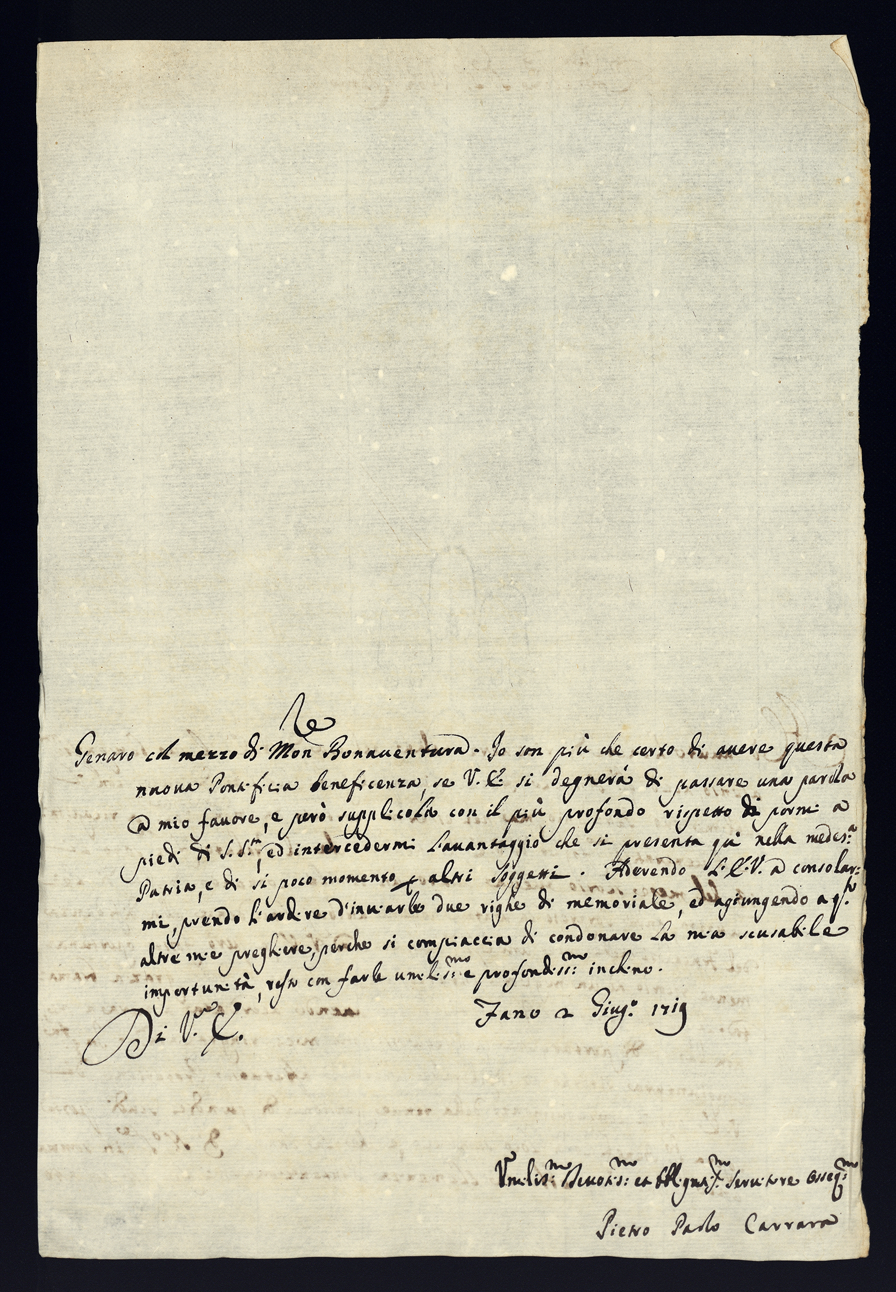 Re
Genaro col mezzo di Mon.r Bonaventura. Io son più che certo di avere questa
nuova Pontificia beneficenza, se V. E. si degnerà di passare una parola
a mio favore, e però supplicola con il più profondo rispetto di pormi a
piedi di S. S.tà, ed intercedermi l'avantaggio che si presenta quì nella medes:a
Patria, e di si poco momento p altri soggetti. Avendo l'E. V. a consolar:
mi, prendo l'ardire d'inviarle due righe di memoriale, ed agiungendo a q.to
altre mie preghiere, perche si compiaccia di condonare la mia scusabile
importunità, resto con farle umilis:mo e profondiss:mo inchino.
Di V.ra E.
Fano 2 Giug.o 1719
Vmilis:mo Devotis:mo et Obbligatis:mo Servitore Osseq:mo
Pietro Paolo Carrara